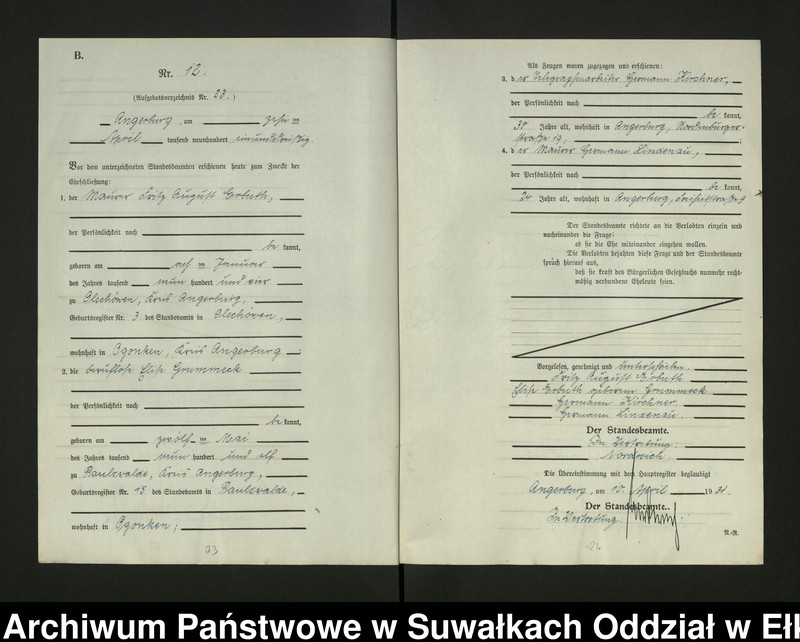 B.
Nr. 12.
(Aufgebotsverzeichnis Nr. 23.)
Angerburg, am zehn ten
April tausend neunhundert einunddreißig.
Vor dem unterzeichneten Standesbeamten erschienen heute zum Zwecke der
Eheschließung:
1. der Maurer Fritz August Erbuth,
der Persönlichkeit nach
be kannt,
geboren am acht ten Januar
des Jahres tausend neun hundert und vier
zu Gleschöwen, Kreis Angerburg,
Geburtsregister Nr. 3 des Standesamts in
wohnhaft in Ogonken, Kreis Angerburg;
2. die berufslose Elise Grummeck
der Persönlichkeit nach
be kannt,
geboren am zwölf ten Mai
des Jahres tausend neun hundert und elf
zu Paulswalde, Kreis Angerburg,
Geburtsregister Nr. 15 des Standesamts in Paulswalde,
wohnhaft in Ogonken;
23
Als Zeugen waren zugezogen und erschienen:
3. d er Telegraphenarbeiter Hermann Kirchner,
der Persönlichkeit nach
be kannt,
30 Jahre alt, wohnhaft in Angerburg, Nordenburger-
straße 19,
4. d er Maurer Hermann Lindenau,
der Persönlichkeit nach
be kannt,
24 Jahre alt, wohnhaft in Angerburg,
Der Standesbeamte richtete an die Verlobten einzeln und
nacheinander die Frage:
ob sie die Ehe miteinander eingehen wollen.
Die Verlobten bejahten diese Frage und der Standesbeamte
sprach hierauf aus,
daß sie kraft des Bürgerlichen Gesetzbuchs nunmehr recht-
mäßig verbundene Eheleute seien.
Vorgelesen, genehmigt und unterschrieben.
Fritz August Erbuth
Elise Erbuth geborene Grummeck
Hermann Kirchner.
Hermann Lindenau.
Der Standesbeamte.
In Vertretung:
Die Übereinstimmung mit dem Hauptregister beglaubigt
Angerburg, am 10. April 1931.
Der Standesbeamte.
In Vertretung:
N.-R.
24
Archiwum Państwowe w Suwałkach Oddział w Eł